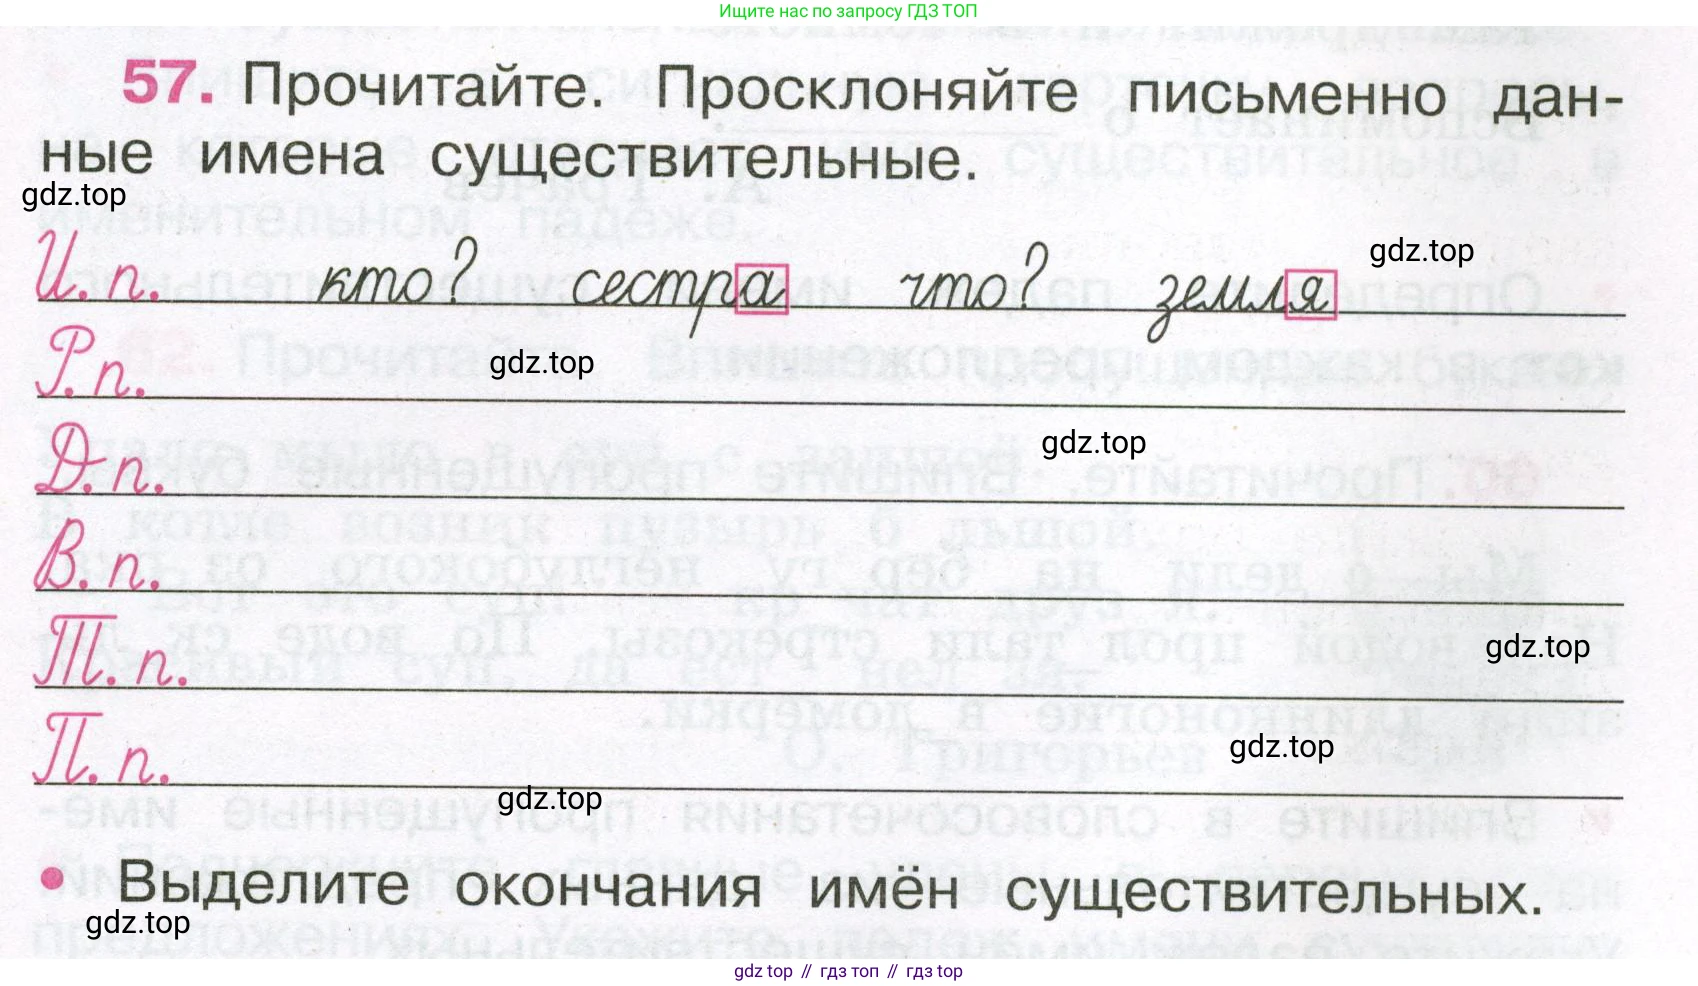 Ищите нас по запросу ГДЗ ТОП
57. Прочитайте. Просклоняйте письменно дан-
ные имена существительные.
gdz.top
gdz.top
И. п. кто? сестра что? земля
Р. п.
gdz.top
Д. п.
gdz.top
В. п.
Т. п.
gdz.top
П. п.
gdz.top
gdz.top
• Выделите окончания имён существительных.
gdz.top
gdz top // гдз топ // гдз top